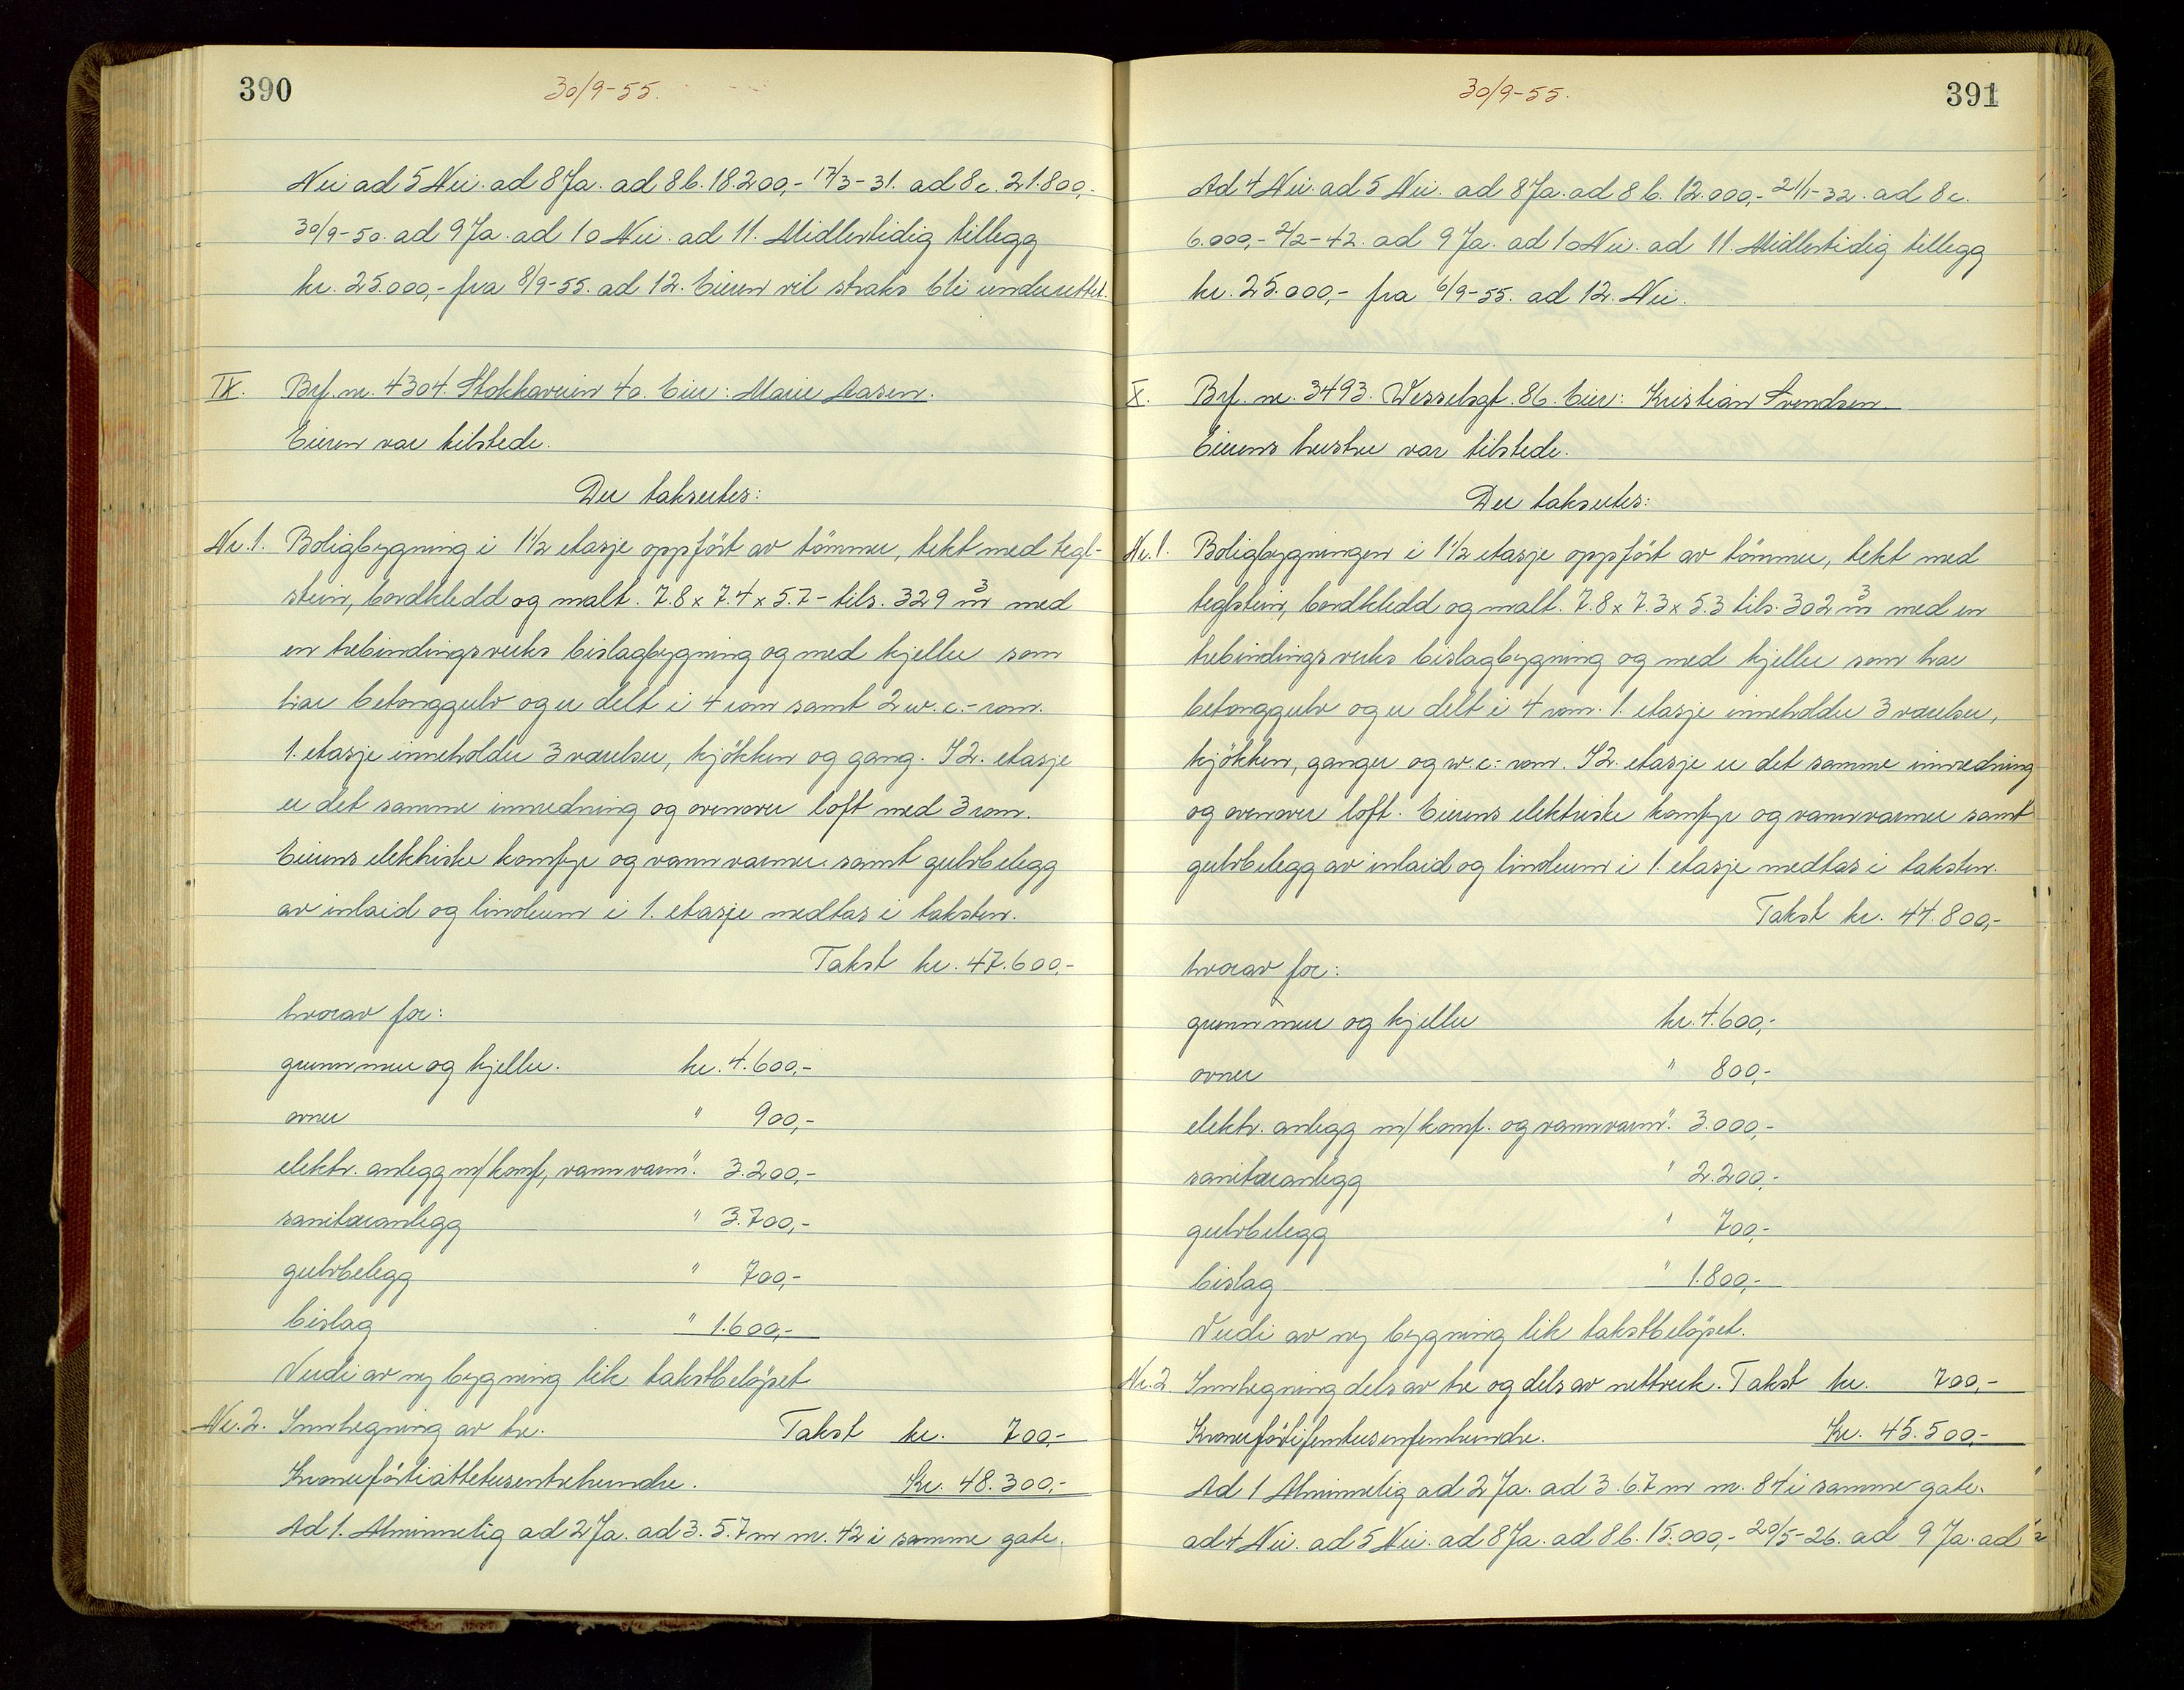 390
30/9-55.
Nei ad 5 Nei. ad 8 Ja. ad 8 b. 18.200,- 17/3-31. ad 8 c. 21.800,-
30/9-50. ad 9 Ja. ad 10 Nei. ad 11. Midlertidig tillegg
kr. 25.000,- fra 8/9-55. ad 12. Eieren vil straks bli underrettet.
IX. Brf. nr. 4304. Stokkaveien 40. Eier: Marie Aasen.
Eieren var tilstede.
Der taksertes:
Nr. 1. Boligbygning i 1 1/2 etasje oppført av tømmer, tekt med tegl-
stein, bordkledd og malt. 7.8 x 7.4 x 5.7 - tils. 329 m³ med
en trebindingsverks bislagbygning og med kjeller som
har betonggulv og er delt i 4 rom samt 2 w.c.-rom.
1. etasje inneholder 3 værelser, kjøkken og gang. I 2. etasje
er det samme innredning og ovenover loft med 3 rom.
Eierens elektriske komfyr og vannvarmer samt gulvbelegg
av inlaid og linoleum i 1. etasje medtas i taksten.
Takst kr. 47.600,-
hvorav for:
grunnmur og kjeller. kr. 4.600,-
ovner " 900,-
elektr. anlegg m/komf, vannvarm. " 3.200,-
sanitæranlegg " 3.700,-
gulvbelegg " 700,-
bislag " 1.600,-
Verdi av ny bygning lik takstbeløpet
Nr. 2. Innhegning av tre. Takst kr. 700,-
Kronerførtiåttetusentrehundre. Kr. 48.300,-
Ad 1. Alminnelig ad 2 Ja. ad 3. 5.7 m nr. 42 i samme gate.
391
30/9-55.
Ad 4 Nei. ad 5 Nei. ad 8 Ja. ad 8 b. 12.000,- 21/1-32. ad 8 c.
6.000,- 2/2-42. ad 9 Ja. ad 10 Nei. ad 11. Midlertidig tillegg
kr. 25.000,- fra 6/9-55. ad 12. Nei.
X. Brf. nr. 3493. Wesselsgt. 86. Eier: Kristian Svendsen.
Eierens hustru var tilstede.
Der taksertes:
Nr. 1. Boligbygningen i 1 1/2 etasje oppført av tømmer, tekt med
teglstein, bordkledd og malt. 7.8 x 7.3 x 5.3 tils. 302 m³ med en
trebindingsverks bislagbygning og med kjeller som har
betonggulv og er delt i 4 rom. 1. etasje inneholder 3 værelser,
kjøkken, ganger og w.c.-rom. I 2. etasje er det samme innredning
og ovenover loft. Eierens elektriske komfyr og vannvarmer samt
gulvbelegg av inlaid og linoleum i 1. etasje medtas i taksten.
Takst kr. 44.800,-
hvorav for:
grunnmur og kjeller kr. 4.600,-
ovner " 800,-
elektr. anlegg m/komf. og vannvarm. " 3.000,-
sanitæranlegg " 2.200,-
gulvbelegg " 700,-
bislag " 1.800,-
Verdi av ny bygning lik takstbeløpet.
Nr. 2 Innhegning dels av tre og dels av nettverk. Takst kr. 700,-
Kronerførtifemtusenfemhundre. Kr. 45.500,-
Ad 1 Alminnelig ad 2 Ja. ad 3. 6.7 m nr. 84 i samme gate.
ad 4 Nei. ad 5 Nei. ad 8 Ja. ad 8 b. 15.000,- 20/5-26. ad 9 Ja. ad